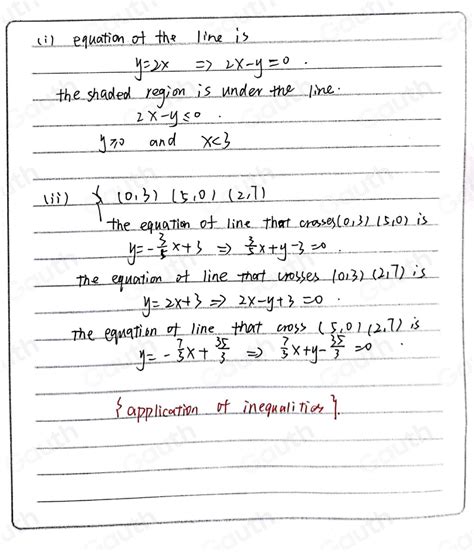 (i) equation of the line is
y=2x => 2x-y=0.
the shaded region is under the line.
2x-y≤0.
y≥0 and x<3
(ii) { (0,3) (5,0) (2,7)
the equation of line that crosses (0,3) (5,0) is
y=-3/5x+3 => 3/5x+y-3=0.
the equation of line that crosses (0,3) (2,7) is
y=2x+3 => 2x-y+3=0.
the equation of line that cross (5,0) (2,7) is
y=-7/3x+35/3 => 7/3x+y-35/3=0.
{application of inequalities}.